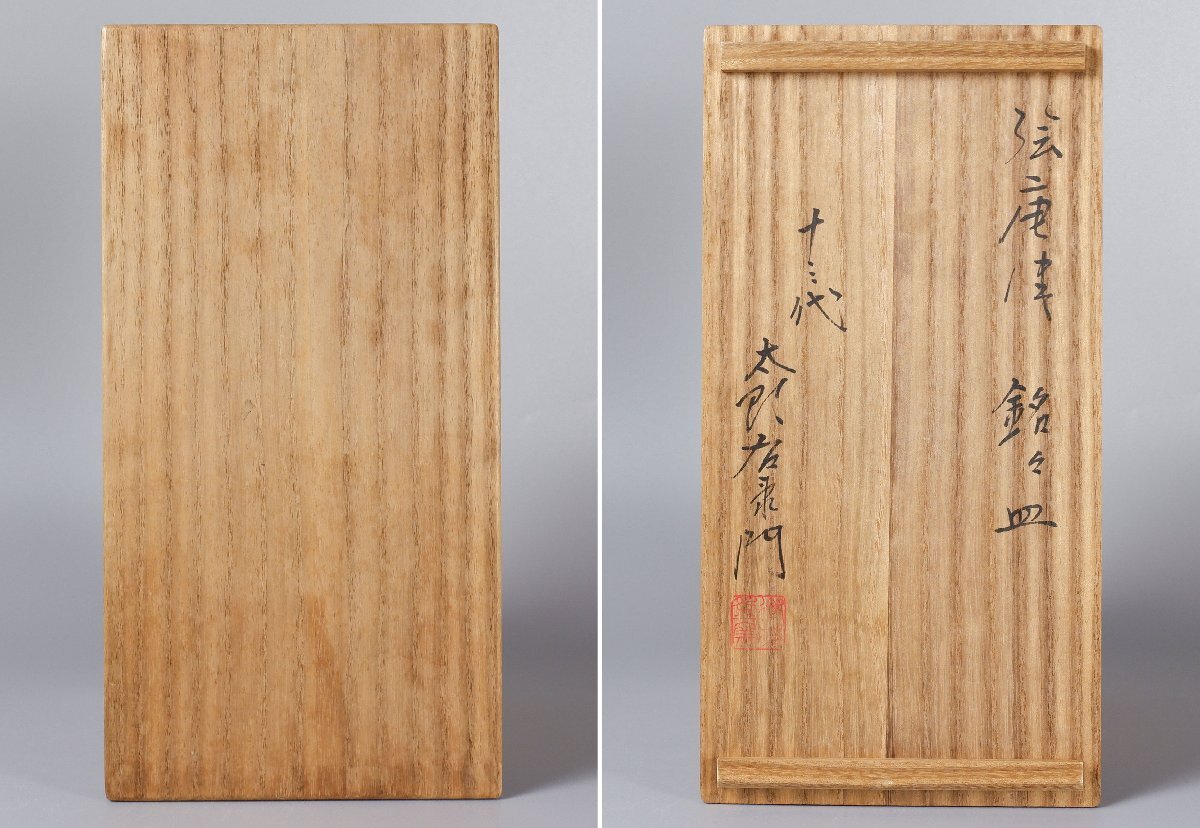 絵唐津 銘々皿
十三代
太郎右衛門